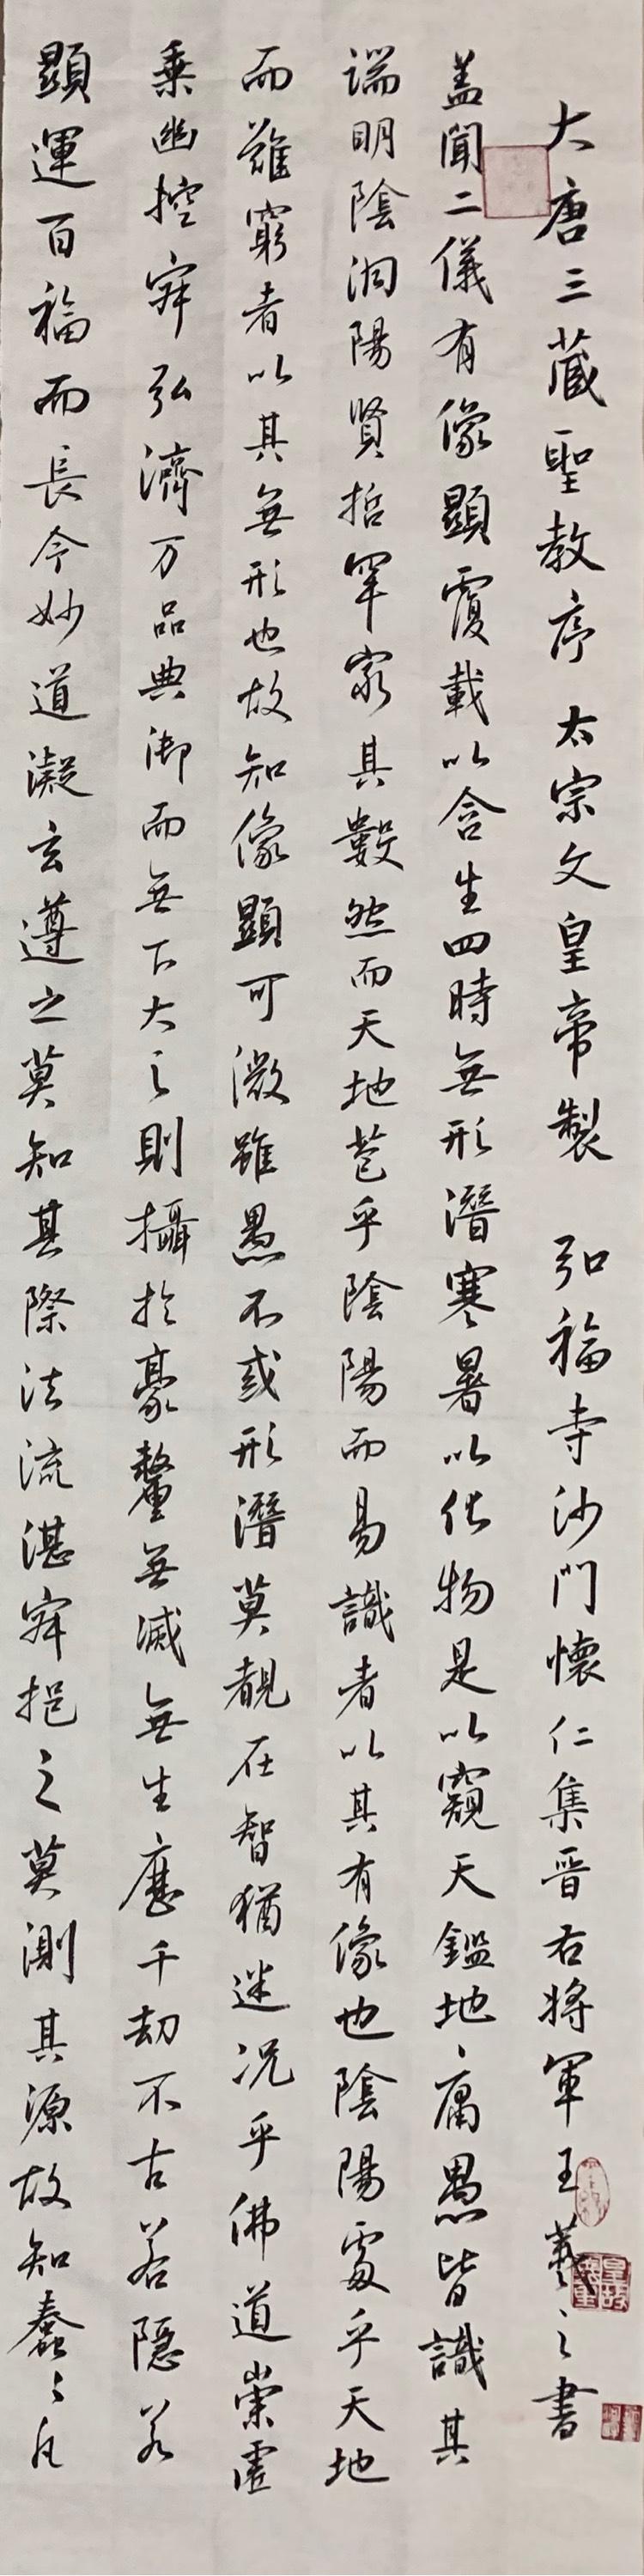 大唐三藏聖教序 太宗文皇帝製 弘福寺沙門懷仁集晉右將軍王羲之書
蓋聞二儀有像顯覆載以含生四時無形潛寒暑以化物是以窺天鑑地庸愚皆識其
端明陰洞陽賢哲罕窮其數然而天地苞乎陰陽而易識者以其有像也陰陽處乎天地
而難窮者以其無形也故知像顯可徵雖愚不惑形潛莫覩在智猶迷况乎佛道崇虛
乘幽控寂弘濟万品典御而無下大之則攝於豪釐無滅無生歷千劫不古若隱若
顯運百福而長今妙道凝玄遵之莫知其際法流湛寂挹之莫測其源故知蠢々凡